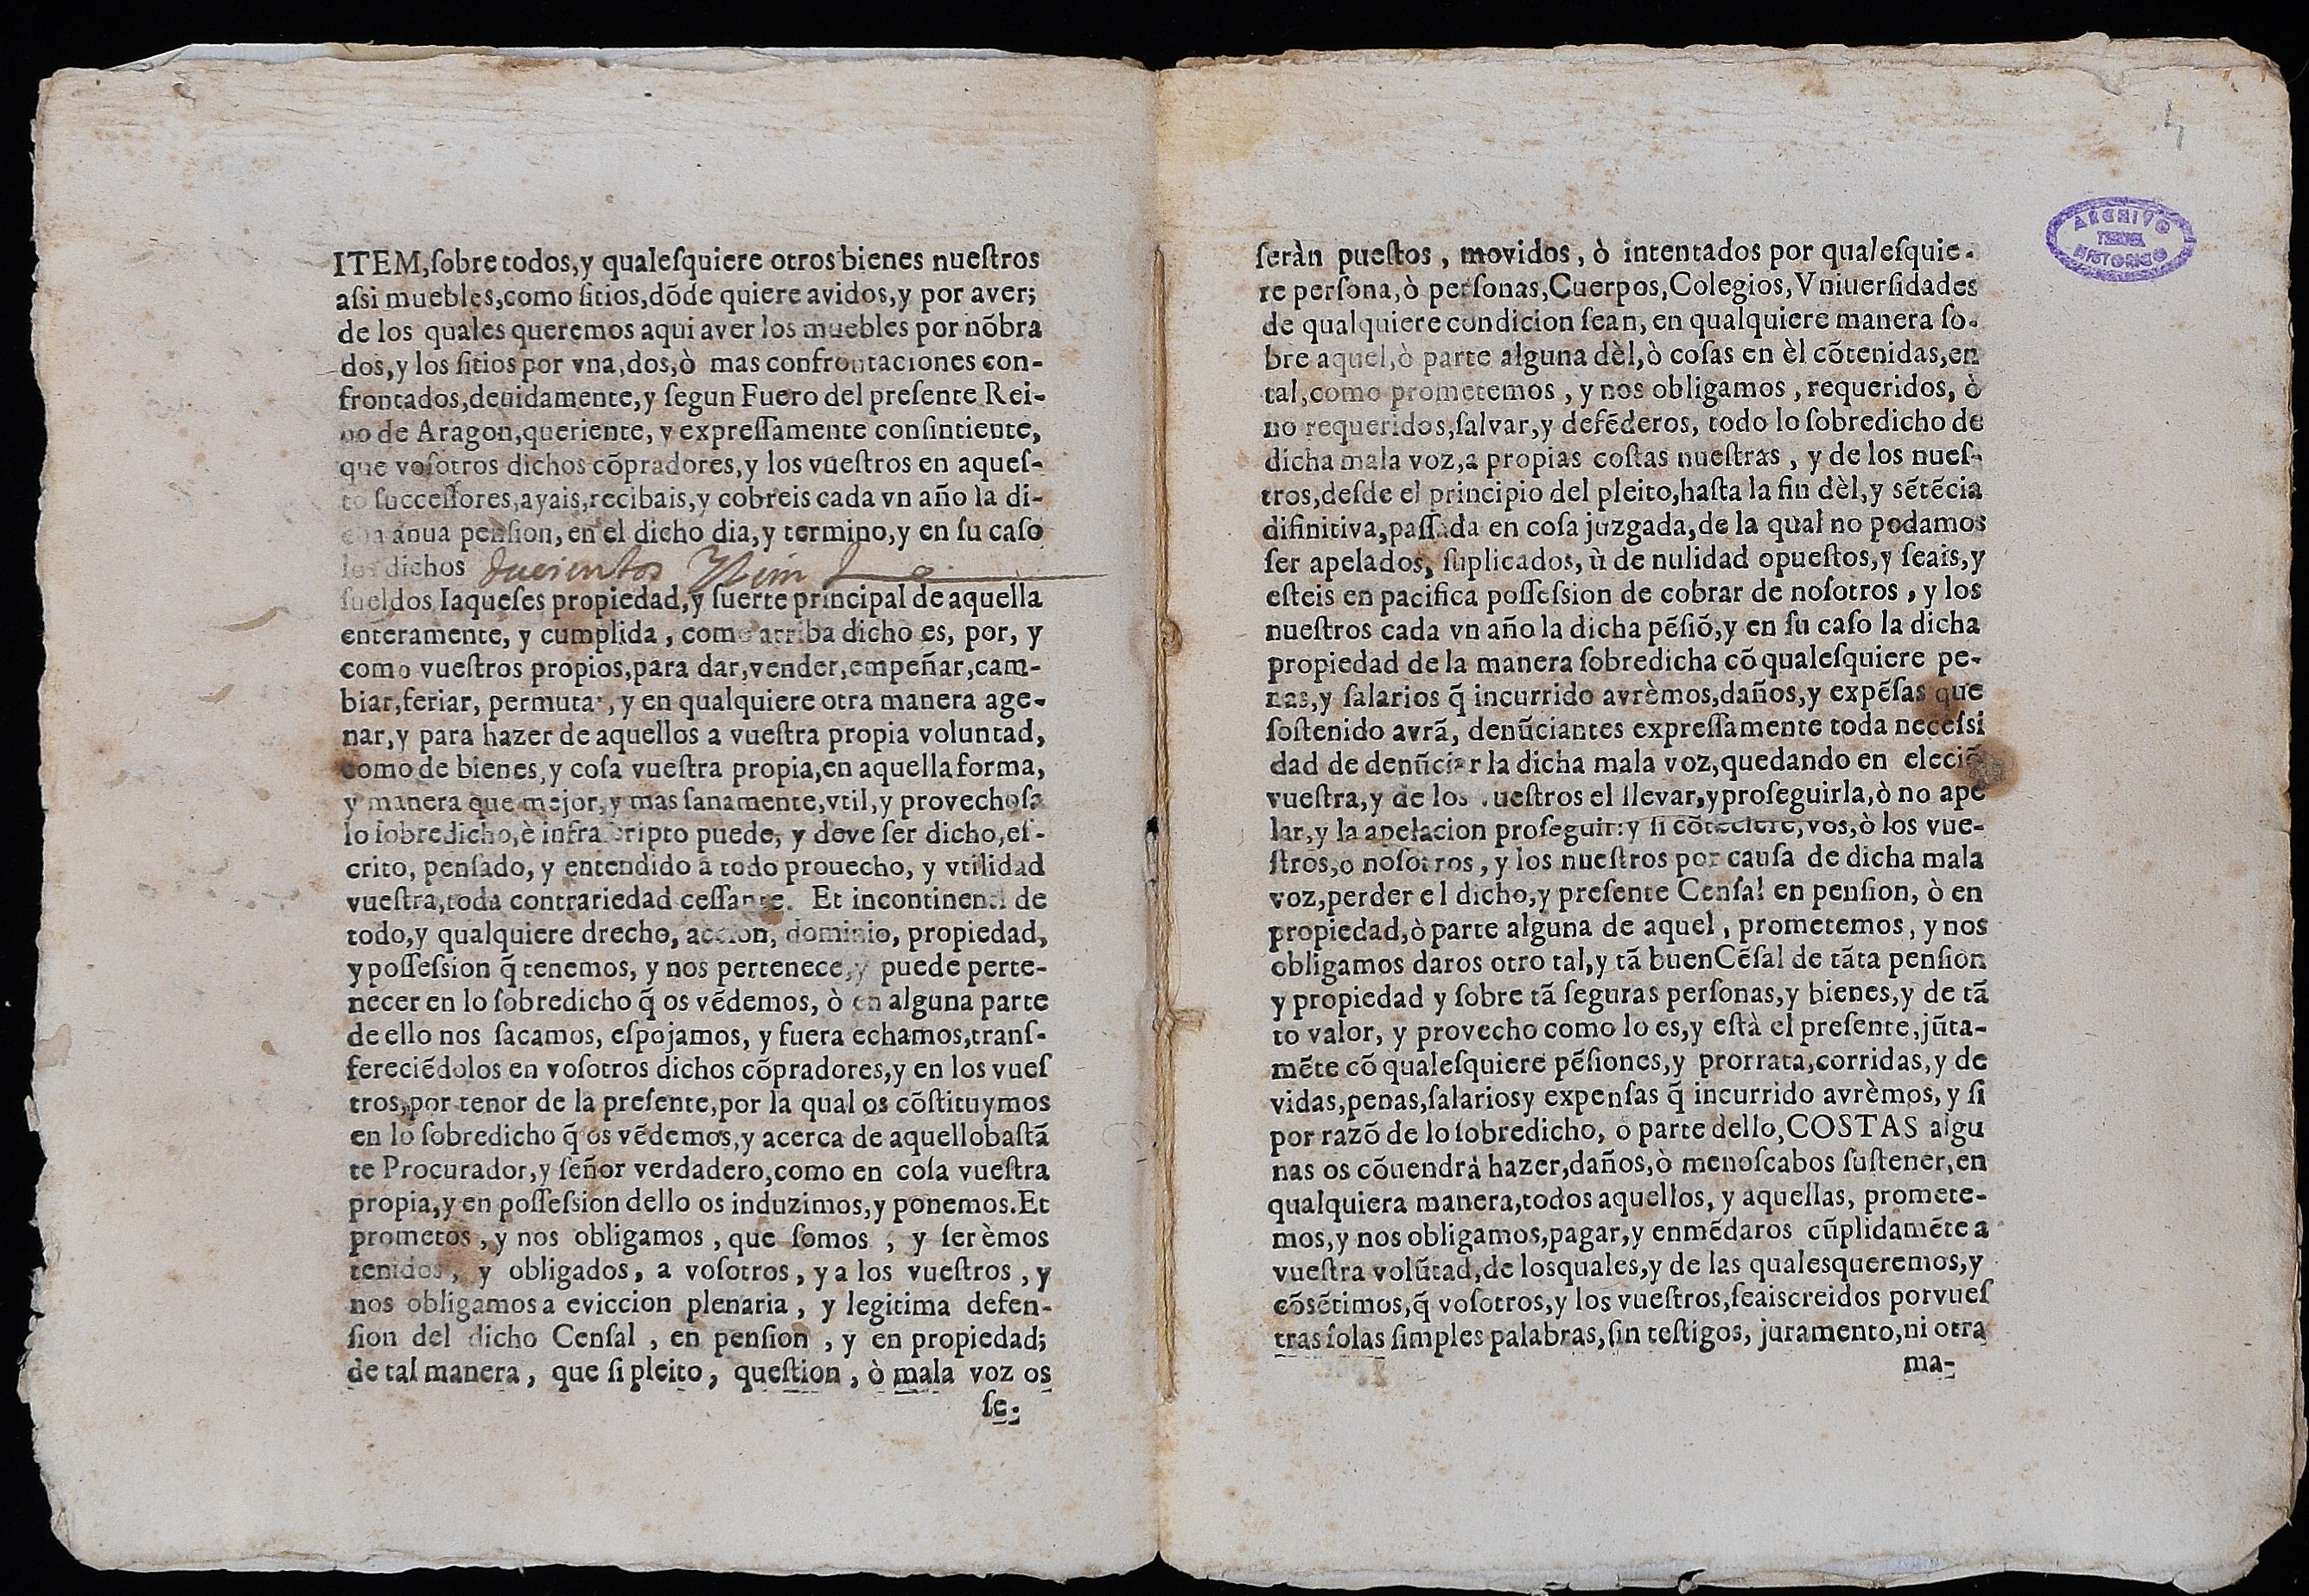 ITEM,ſobre todos,y qualeſquiere otros bienes nueſtros
aſsi muebles,como ſitios,dõde quiere avidos,y por aver;
de los quales queremos aqui aver los muebles por nõbra
dos,y los ſitios por vna,dos,ò mas confrontaciones con-
frontados,deuidamente,y ſegun Fuero del preſente Rei-
no de Aragon,queriente, y expreſſamente conſintiente,
que voſotros dichos cõpradores,y los vueſtros en aqueſ-
to ſucceſſores,ayais,recibais,y cobreis cada vn año la di-
cha anua penſion,en el dicho dia,y termino,y en ſu caſo
los dichos ducientos Y Vein
ſueldos Iaqueſes propiedad,y ſuerte principal de aquella
enteramente, y cumplida, como arriba dicho es, por, y
como vueſtros propios,para dar,vender,empeñar,cam-
biar,feriar, permutar, y en qualquiere otra manera age-
nar,y para hazer de aquellos a vueſtra propia voluntad,
como de bienes, y coſa vueſtra propia,en aquella forma,
y manera que mejor, y mas ſanamente,vtil,y provechoſa
lo ſobredicho,è infraſcripto puede, y deve ſer dicho,eſ-
crito, penſado, y entendido â todo prouecho, y vtilidad
vueſtra,toda contrariedad ceſſante. Et incontinenti de
todo,y qualquiere drecho, accion, dominio, propiedad,
y poſſeſsion q̃ tenemos, y nos pertenece,y puede perte-
necer en lo ſobredicho q̃ os vẽdemos, ò en alguna parte
de ello nos ſacamos, eſpojamos, y fuera echamos,tranſ-
fereciẽdolos en voſotros dichos cõpradores,y en los vueſ
tros,por tenor de la preſente,por la qual os cõſtituymos
en lo ſobredicho q̃ os vẽdemos,y acerca de aquellobaſtã
te Procurador,y ſeñor verdadero,como en coſa vueſtra
propia,y en poſſeſsion dello os induzimos,y ponemos.Et
prometos, y nos obligamos, que ſomos, y ſerèmos
tenidos, y obligados, a voſotros, y a los vueſtros, y
nos obligamos a eviccion plenaria, y legitima defen-
ſion del dicho Cenſal, en penſion, y en propiedad;
de tal manera, que ſi pleito, queſtion, ò mala voz os
ſe-
4
ARCHIVO
HISTORICO
ſeràn pueſtos, movidos, ò intentados por qualeſquie-
re perſona,ò perſonas,Cuerpos,Colegios,Vniuerſidades
de qualquiere condicion ſean, en qualquiere manera ſo-
bre aquel,ò parte alguna dèl,ò coſas en èl cõtenidas,en
tal,como prometemos, y nos obligamos, requeridos, ò
no requeridos,ſalvar,y defẽderos, todo lo ſobredicho de
dicha mala voz,a propias coſtas nueſtras, y de los nueſ-
tros,deſde el principio del pleito,haſta la fin dèl,y sẽtẽcia
difinitiva,paſſada en coſa juzgada,de la qual no podamos
ſer apelados, ſuplicados, ù de nulidad opueſtos,y ſeais,y
eſteis en pacifica poſſeſsion de cobrar de noſotros, y los
nueſtros cada vn año la dicha pẽſiõ,y en ſu caſo la dicha
propiedad de la manera ſobredicha cõ qualeſquiere pe-
nas,y ſalarios q̃ incurrido avrèmos,daños,y expẽſas que
ſoſtenido avrã, denũciantes expreſſamente toda neceſsi
dad de denũciar la dicha mala voz,quedando en eleciõ
vueſtra,y de los vueſtros el llevar,yproſeguirla,ò no ape
lar,y la apelacion proſeguir:y ſi cõteciere,vos,ò los vue-
ſtros,o noſotros, y los nueſtros por cauſa de dicha mala
voz,perder el dicho,y preſente Cenſal en penſion, ò en
propiedad,ò parte alguna de aquel, prometemos, y nos
obligamos daros otro tal,y tã buenCẽſal de tãta penſion
y propiedad y ſobre tã ſeguras perſonas,y bienes,y de tã
to valor, y provecho como lo es,y eſtà el preſente,jũta-
mẽte cõ qualeſquiere pẽſiones,y prorrata,corridas,y de
vidas,penas,ſalariosy expenſas q̃ incurrido avrèmos, y ſi
por razõ de lo ſobredicho, o parte dello,COSTAS algu
nas os cõuendrà hazer,daños,ò menoſcabos ſuſtener,en
qualquiera manera,todos aquellos, y aquellas, promete-
mos,y nos obligamos,pagar,y enmẽdaros cũplidamẽte a
vueſtra volũtad,de losquales,y de las qualesqueremos,y
cõsẽtimos,q̃ voſotros,y los vueſtros,ſeaiscreidos porvueſ
tras ſolas ſimples palabras,ſin teſtigos, juramento,ni otra
ma-